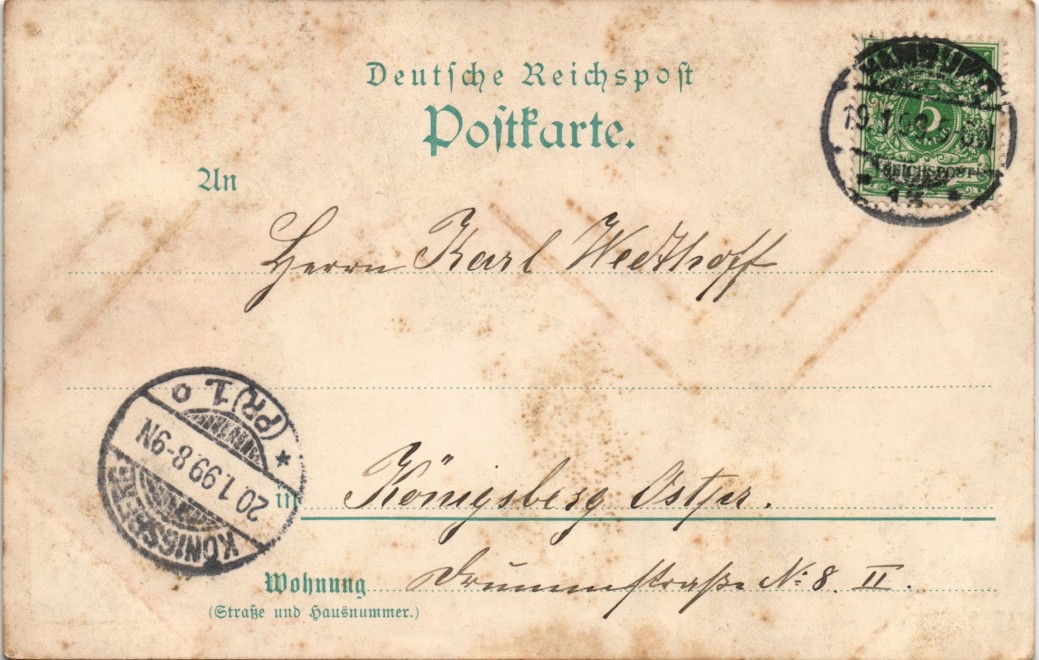 Deutsche Reichspost
Postkarte.
An
HAMBURG
19.1.99
5
REICHSPOST
Herrn Karl Wedthoff
(PR) 1. o
20.1.99.8-9N
KÖNIGSBERG
in Königsberg Ostpr.
Wohnung Drummstraße No: 8. II.
(Straße und Hausnummer.)